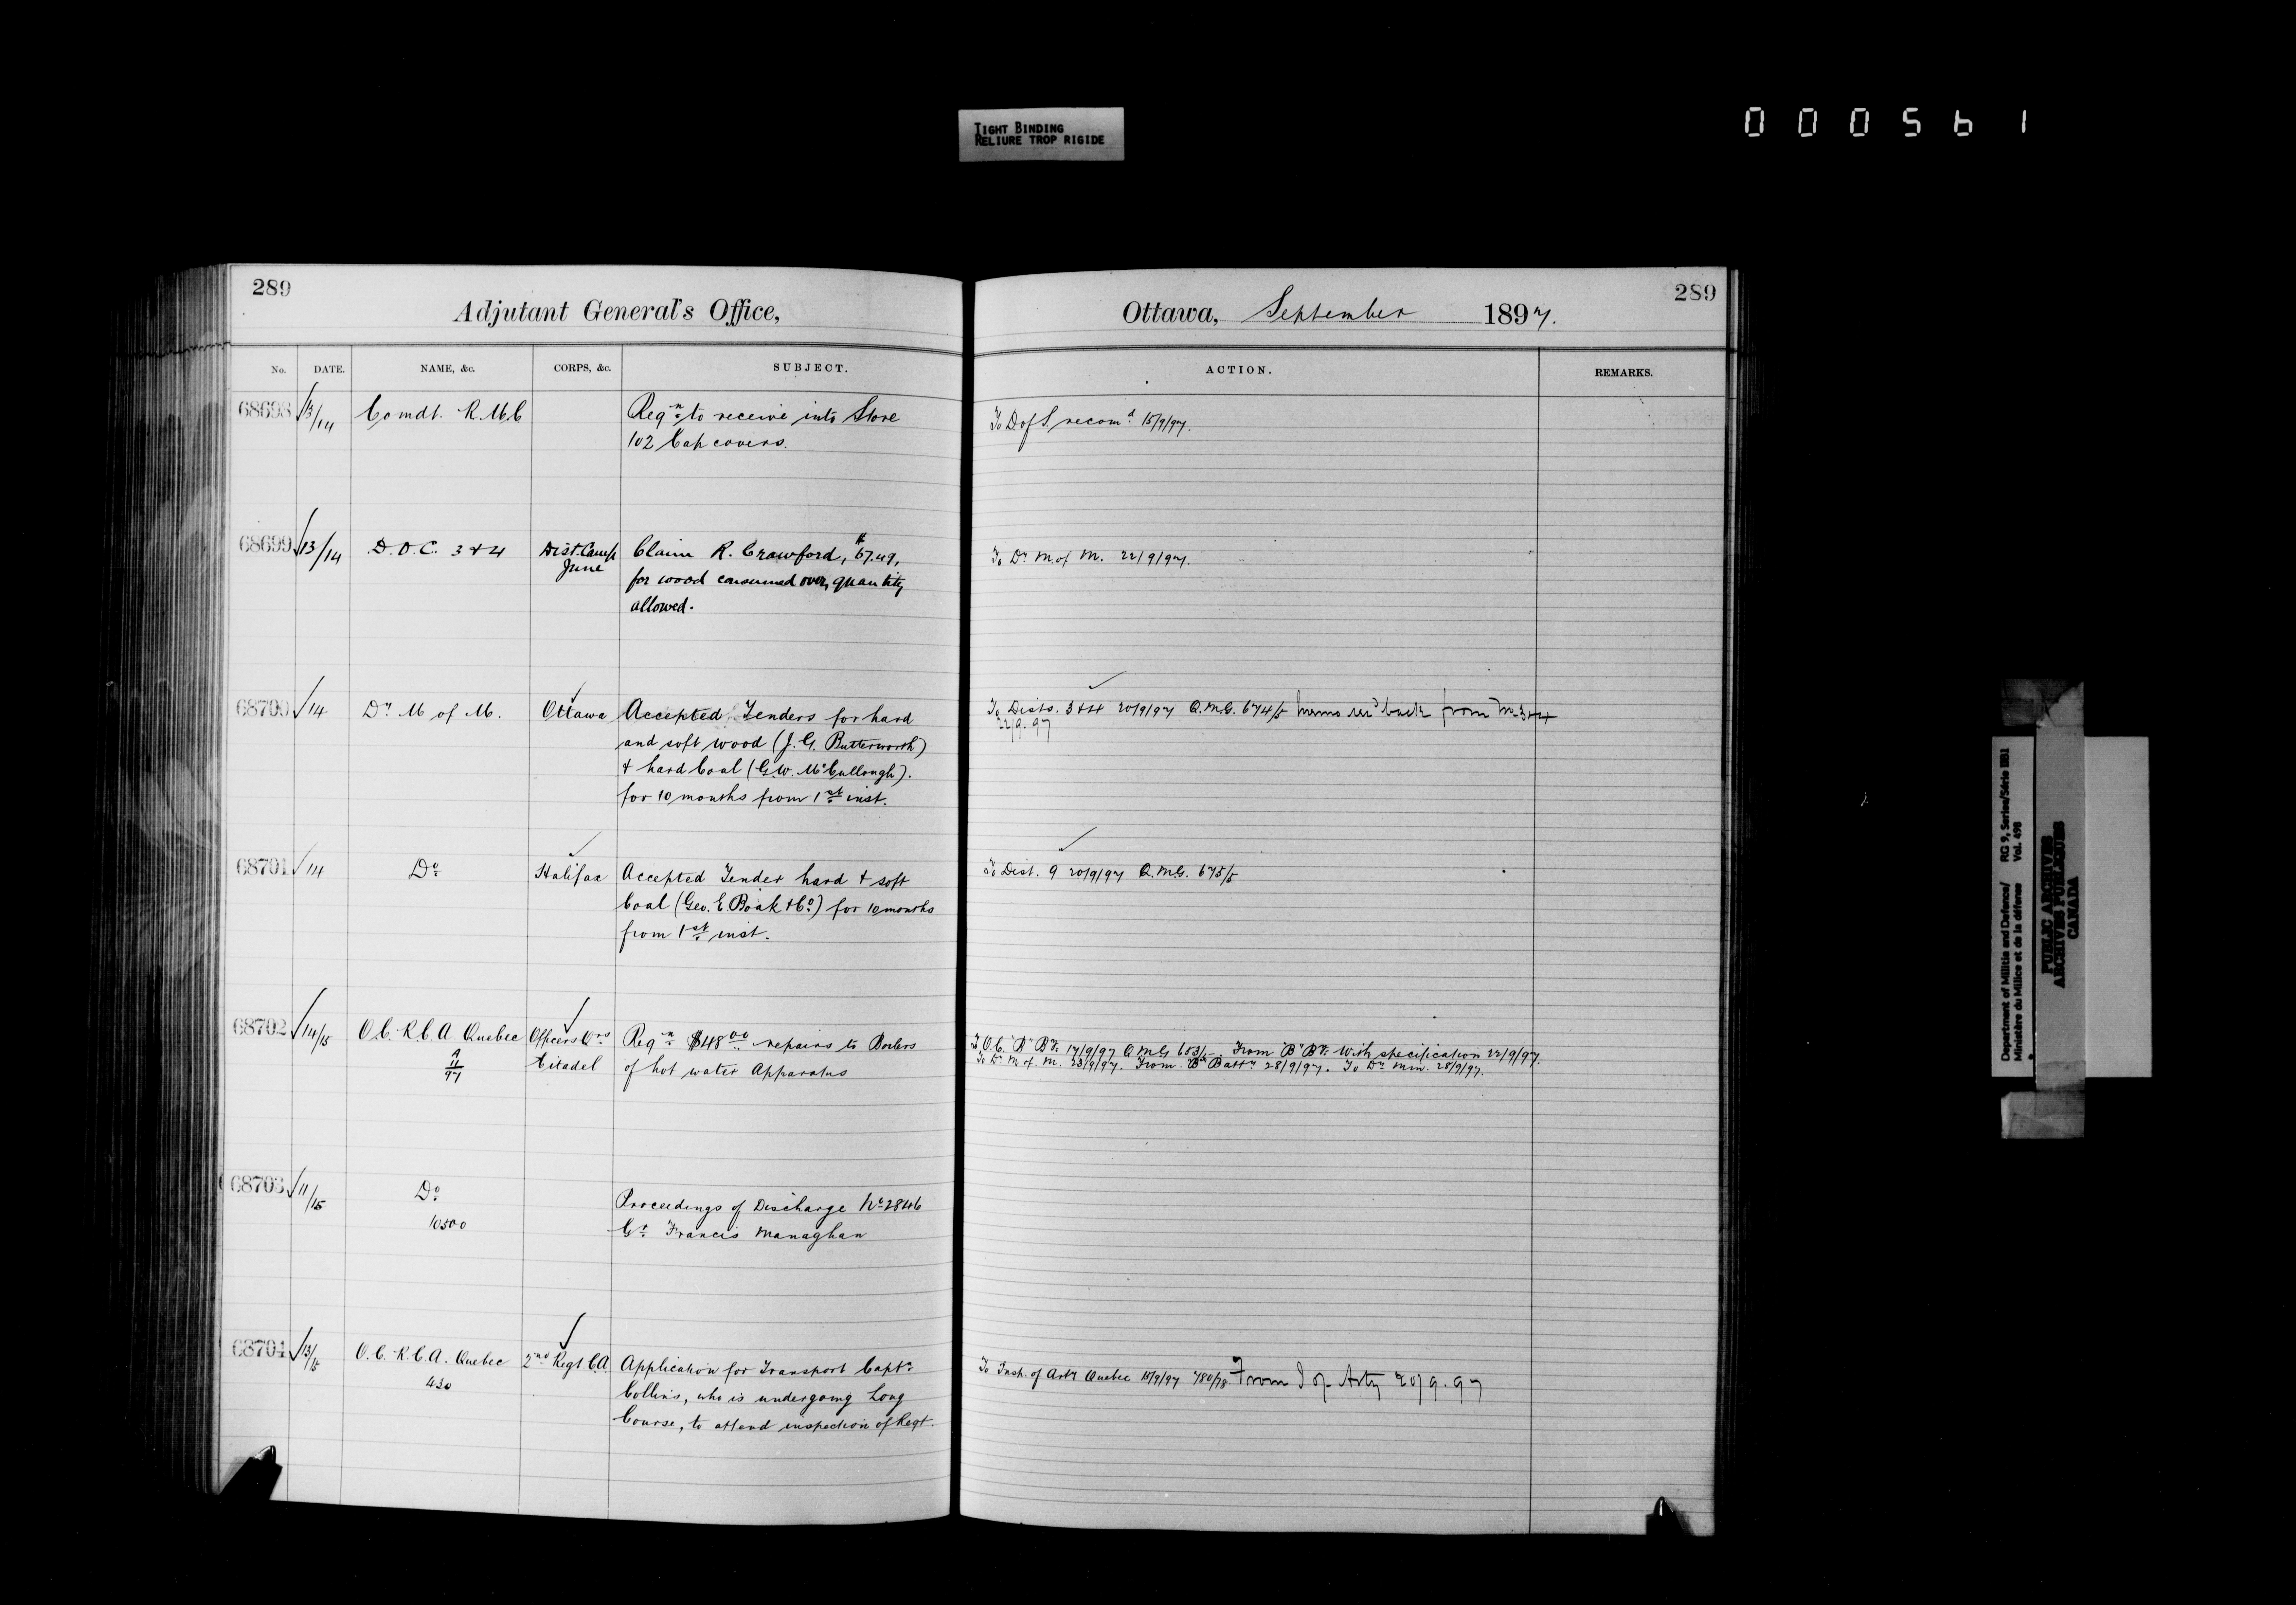 TIGHT BINDING
RELIURE TROP RIGIDE
000561
289
Adjutant General's Office,
No. DATE. NAME, &c. CORPS, &c. SUBJECT.
68698 13/14 Comdt. R.M.C Reqn to receive into Store
102 Cap covers.
68699 13/14 D.O.C. 3 & 4 Dist. Camp Claim R. Crawford, $67.49,
June for wood consumed over quantity
allowed.
68700 14 Dr M of M. Ottawa Accepted Tenders for hard
and soft wood (J. G. Butterworth)
& hard Coal (G.W. McCullough).
for 10 months from 1st inst.
68701 14 Do Halifax Accepted Tender hard & soft
Coal (Geo. E Boak & Co) for 10 months
from 1st inst.
68702 14/15 O.C. R.C.A Quebec Officers Qrs Reqn $48.00 repairs to Boilers
A
11
97 Citadel of hot water Apparatus
68703 11/15 Do Proceedings of Discharge No 2846
10500 Gr Francis Managhan
68704 13/15 O.C. R.C.A. Quebec 2nd Regt C.A. Application for Transport Captn
430 Collins, who is undergoing Long
Course, to attend inspection of Regt.
289
Ottawa, September 1897.
ACTION. REMARKS.
To D of S, recomd 15/9/97.
To Dr M. of M. 22/9/97.
To Dists. 3 & 4 20/9/97 Q.M.G. 674/5 memo recd back from No 3 & 4
22/9.97
To Dist. 9 20/9/97 Q.M.G. 675/5
To O.C. "B" By. 17/9/97 Q.M.G 653/5. From "B" By. with specification 22/9/97.
To Dr M. of M. 23/9/97. From "B" Batty 28/9/97. To Dr Min. 28/9/97.
To Insp. of Arty Quebec 15/9/97 780/78. From I of Arty 20/9.97
Department of Militia and Defence/ RG 9, Series/Série IIB1
Ministère du Milice et de la défense Vol. 498
PUBLIC ARCHIVES
ARCHIVES PUBLIQUES
CANADA